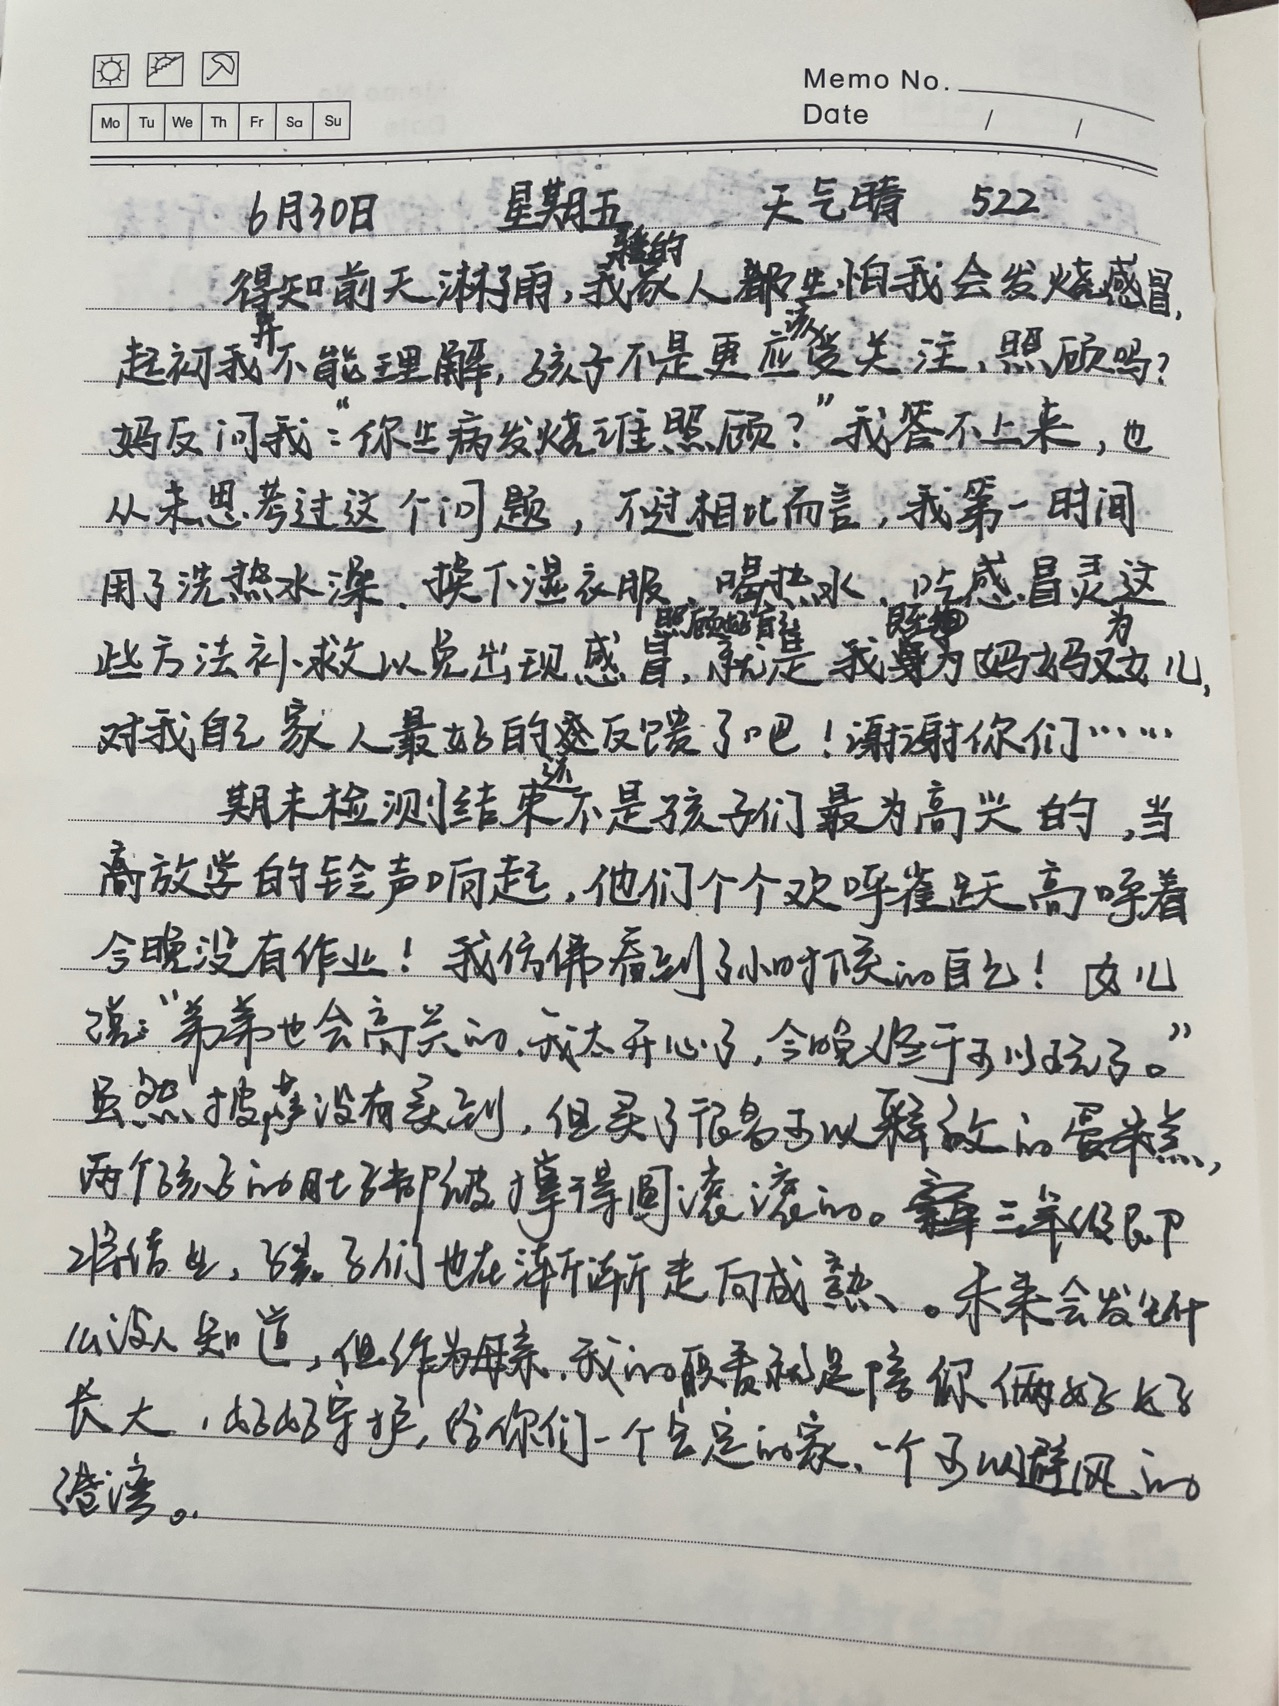 Memo No.
Mo Tu We Th Fr Sa Su
Date / /
6月30日 星期五 天气晴 522
得知前天淋了雨,我家人都生怕我会发烧感冒,
起初我并不能理解,孩子不是更应该受关注、照顾吗?
妈反问我:“你生病发烧谁照顾?”我答不上来,也
从未思考过这个问题,不过相比而言,我第一时间
用了洗热水澡、换下湿衣服、喝热水、吃感冒灵这
些方法补救以免出现感冒,照顾好自己就是我身为妈妈又为女儿,
对我自己家人最好的反馈了吧!谢谢你们……
期末检测结束还不是孩子们最为高兴的,当
放学的铃声响起,他们个个欢呼雀跃高呼着
今晚没有作业!我仿佛看到了小时候的自己!女儿
说:“弟弟也会高兴的,我太开心了,今晚终于可以玩了。”
虽然披萨没有买到,但买了很多可以释放的蛋糕,
两个孩子的肚子都被撑得圆滚滚的。三年级即
将结业,孩子们也在渐渐走向成熟、。未来会发生什
么没人知道,但作为母亲,我的职责就是陪你俩好好
长大,好好守护,给你们一个安定的家、一个可以避风的
港湾。